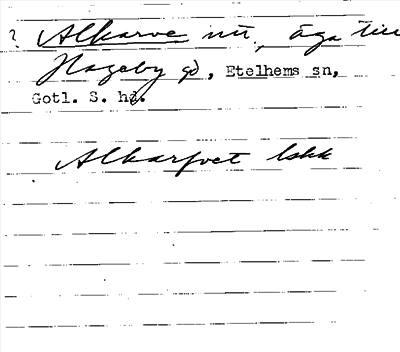 ? Alkarve nu., äga till
Hageby gd, Etelhems sn,
Gotl. S. hd.
Alkarfvet lskk